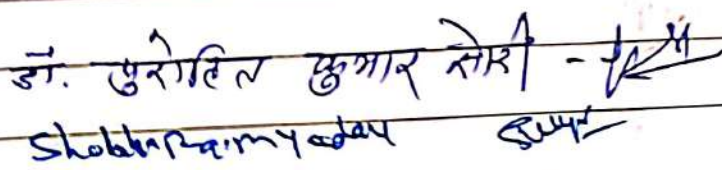 डॉ. पुरोहित कुमार सोरी -
Shobha Ram yadav